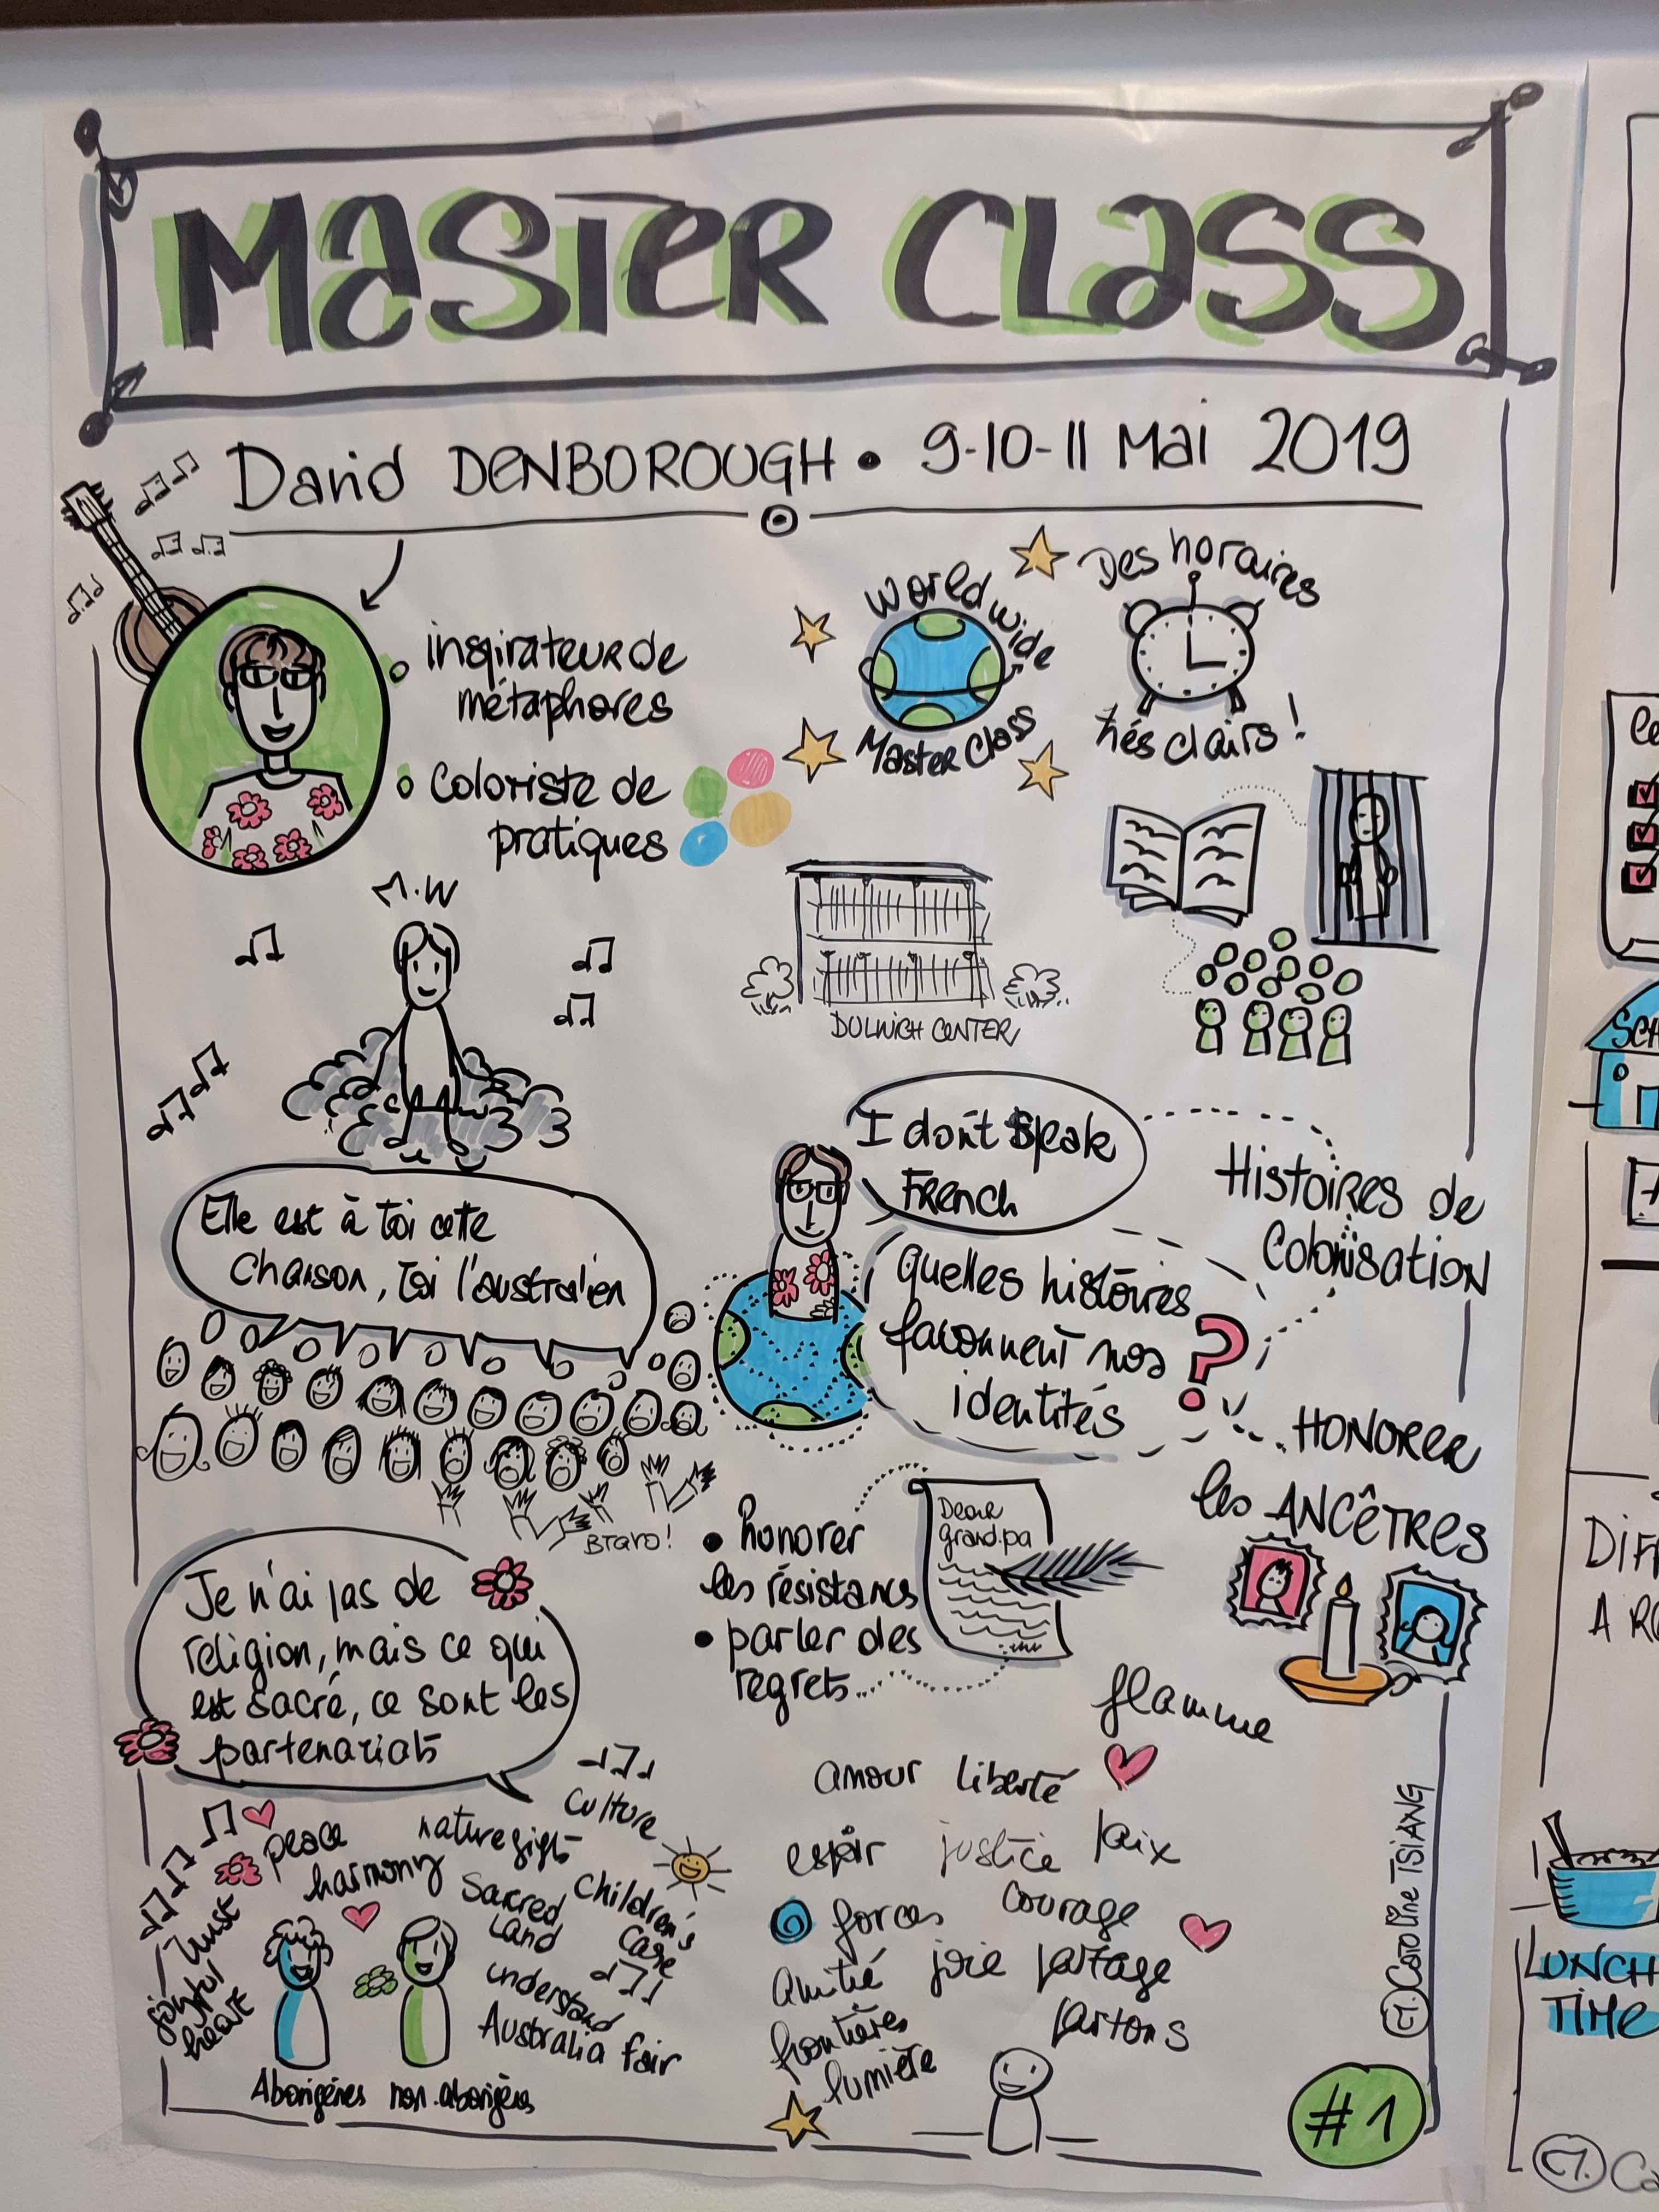 MASTER CLASS
David DENBOROUGH • 9-10-11 Mai 2019
inspirateur de
métaphores
Coloriste de
pratiques
World Wide
Master Class
Des horaires
très clairs !
M.W
DULWICH CENTER
I don't speak
French
Histoires de
Colonisation
Elle est à toi cette
chanson, toi l'australien
quelles histoires
façonnent nos
identités
?
HONORER
les ANCÊTRES
BRAVO !
• honorer
les résistances
• parler des
regrets...
Dear
grand.pa
Je n'ai pas de
religion, mais ce qui
est sacré, ce sont les
partenariats
flamme
amour liberté
espoir justice paix
forces courage
amitié joie partage
frontières partons
lumière
culture
peace
nature gifts
harmony
Sacred
Land
children's
care
trust
joyful
heart
understand
Australia fair
Aborigènes non-aborigènes
CT. CAROLINE TSIANG
#1
SCH
DIFF
A RO
LUNCH
TIME
CT. Ca